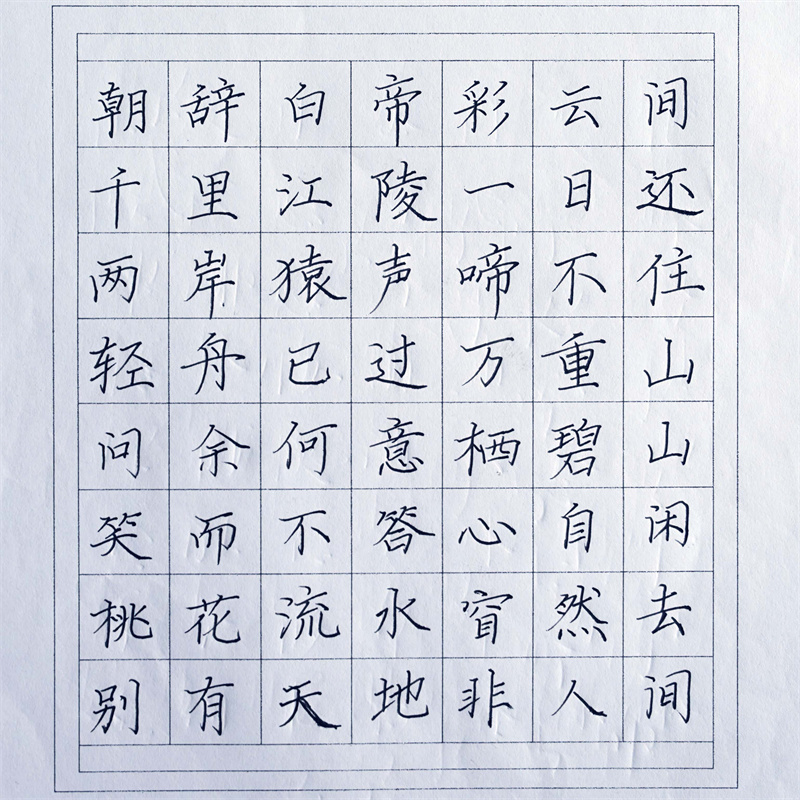 朝辞白帝彩云间
千里江陵一日还
两岸猿声啼不住
轻舟已过万重山
问余何意栖碧山
笑而不答心自闲
桃花流水窅然去
别有天地非人间